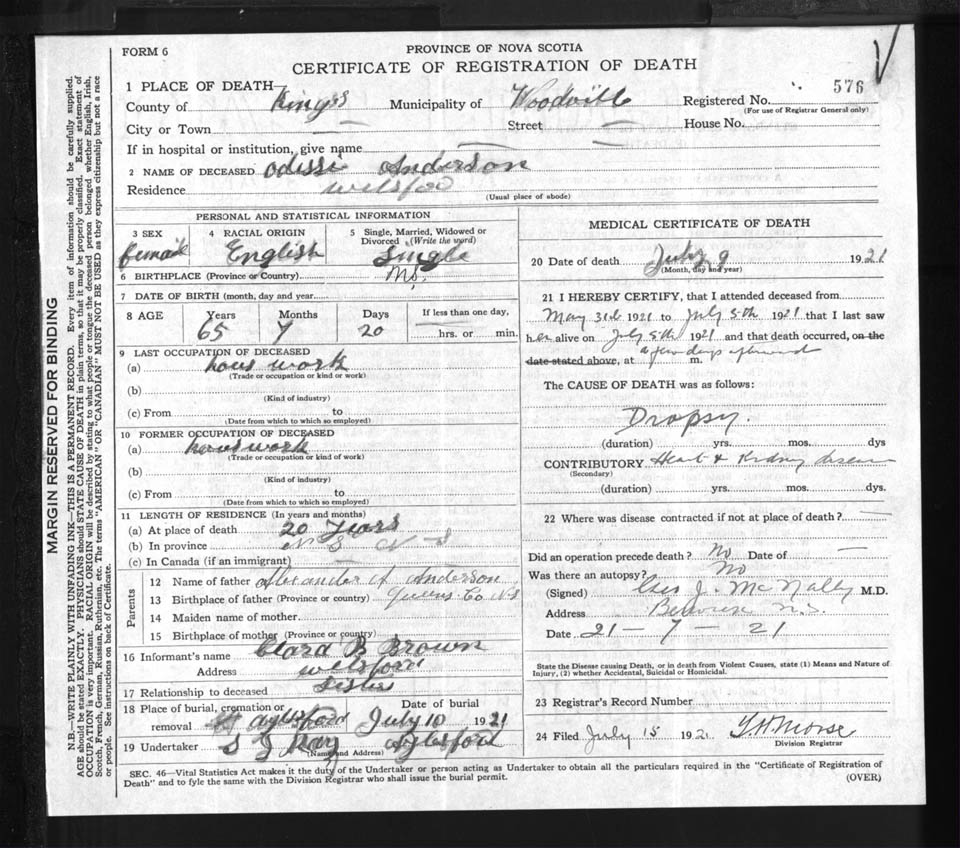 FORM 6
PROVINCE OF NOVA SCOTIA
CERTIFICATE OF REGISTRATION OF DEATH
576
1 PLACE OF DEATH—
County of Kings Municipality of Woodville Registered No.
(For use of Registrar General only)
City or Town — Street — House No.
If in hospital or institution, give name — —
2 NAME OF DECEASED Odessi Anderson
Residence Welsford
(Usual place of abode)
PERSONAL AND STATISTICAL INFORMATION
3 SEX 4 RACIAL ORIGIN 5 Single, Married, Widowed or
Divorced (Write the word)
female English Single
6 BIRTHPLACE (Province or Country) N.S.
7 DATE OF BIRTH (month, day and year)
8 AGE Years Months Days If less than one day,
65 7 20 hrs. or min.
9 LAST OCCUPATION OF DECEASED
(a) hous work
(Trade or occupation or kind or work)
(b)
(Kind of industry)
(c) From to
(Date from which to which so employed)
10 FORMER OCCUPATION OF DECEASED
(a) hous work
(Trade or occupation or kind of work)
(b)
(Kind of industry)
(c) From to
(Date from which to which so employed)
11 LENGTH OF RESIDENCE (In years and months)
(a) At place of death 20 Years
(b) In province N S N S
(c) In Canada (if an immigrant) —
Parents
12 Name of father Alexander Anderson
13 Birthplace of father (Province or country) Queens Co N.S
14 Maiden name of mother
15 Birthplace of mother (Province or country)
16 Informant's name Clara B Brown
Address Welsford
17 Relationship to deceased Sister
18 Place of burial, cremation or Date of burial
removal Aylsford July 10 1921
19 Undertaker S J Aylsford
(Name and Address)
MEDICAL CERTIFICATE OF DEATH
20 Date of death July 9 1921
(Month, day and year)
21 I HEREBY CERTIFY, that I attended deceased from
May 31st 1921 to July 5th 1921 that I last saw
her alive on July 5th 1921 and that death occurred, on the
date stated above, at a few days afterward m.
The CAUSE OF DEATH was as follows:
Dropsy.
(duration) yrs. mos. days
CONTRIBUTORY Heart & Kidney disease
(Secondary)
(duration) yrs. mos. days.
22 Where was disease contracted if not at place of death? —
Did an operation precede death? No Date of —
Was there an autopsy? No
(Signed) J. McNally M.D.
Address Berwick N.S.
Date 21 — 7 — 21
State the Disease causing Death, or in death from Violent Causes, state (1) Means and Nature of
Injury, (2) whether Accidental, Suicidal or Homicidal.
23 Registrar's Record Number
24 Filed July 15 1921 Morse
Division Registrar
SEC. 46—Vital Statistics Act makes it the duty of the Undertaker or person acting as Undertaker to obtain all the particulars required in the "Certificate of Registration of
Death" and to fyle the same with the Division Registrar who shall issue the burial permit.
(OVER)
MARGIN RESERVED FOR BINDING
N.B.—WRITE PLAINLY WITH UNFADING INK—THIS IS A PERMANENT RECORD. Every item of information should be carefully supplied.
AGE should be stated EXACTLY. PHYSICIANS should STATE CAUSE OF DEATH in plain terms, so that it may be properly classified. Exact statement of
OCCUPATION is very important. RACIAL ORIGIN will be described by stating to what people or tongue the deceased person belonged whether English, Irish,
Scotch, French, German, Russian, Ruthenian, etc. The terms "AMERICAN" OR "CANADIAN" MUST NOT BE USED as they express citizenship but not a race
or people. See instructions on back of Certificate.